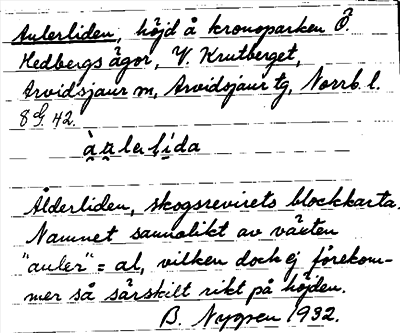 Aulerliden, höjd å kronoparken Ö.
Hedbergs ägor, V. Krutberget,
Arvidsjaur sn, Arvidsjaur tg, Norrb. l.
8 G 42.
àu̯lerlida
Ålderliden, skogsrevirets blockkarta.
Namnet sannolikt av växten
"auler" = al, vilken dock ej förekom-
mer så särskilt rikt på höjden.
B. Nygren 1932.